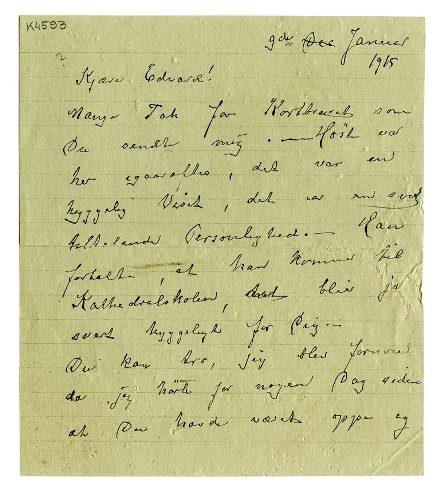 K4593
9de Dec Januar
1915
Kjære Edvard!
Mange Tak for Kortbrevet som
Du sendt mig. — Høst var
her igaaraftes, det var en
hyggelig Visit, det er en svært
tiltalende Personlighed. — Han
fortalte, at han kommer til
Kathedralskolen, det blir jo
svært hyggeligt for Dig. —
Du kan tro, jeg blev fornøiet
da jeg hörte for nogen Dag siden
at Du havde været oppe og